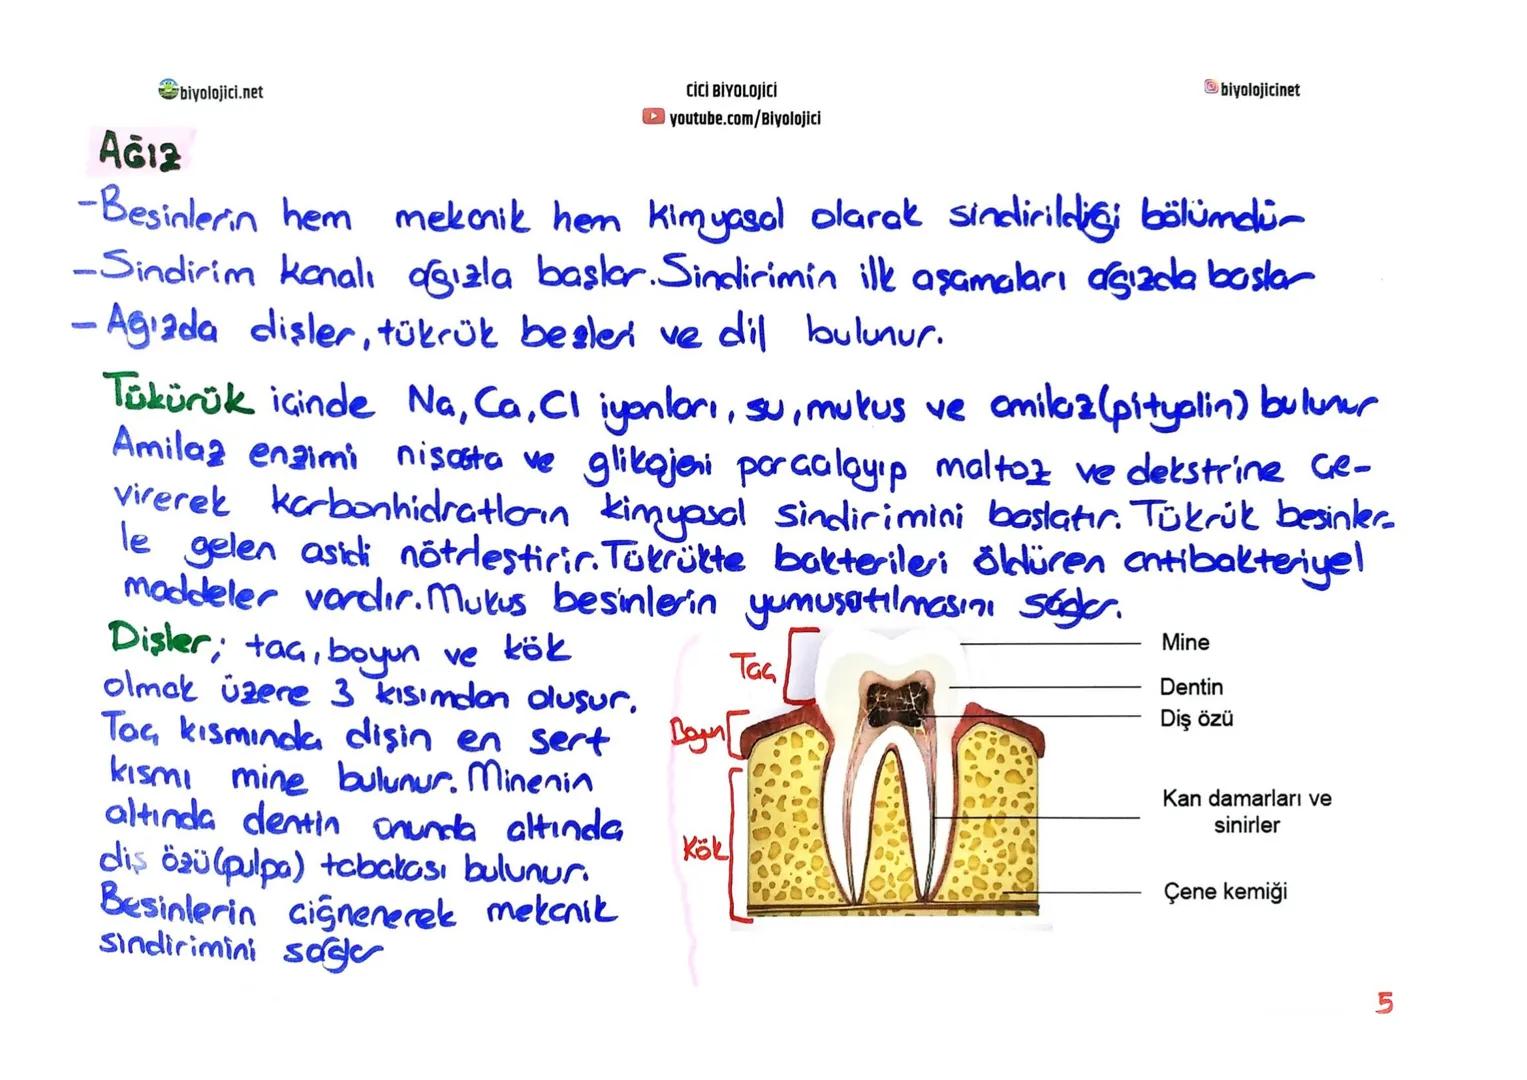 biyolojici.net
CİCİ BİYOLOJİCİ
youtube.com/Biyolojici
biyolojicinet
AĞIZ
-Besinlerin hem mekanik hem kimyasal olarak sindirildiği bölümdür
-Sindirim kanalı ağızla başlar. Sindirimin ilk aşamaları ağızda başlar
-Ağızda dişler, tükrük bezleri ve dil bulunur.
Tükürük içinde Na, Ca, Cl iyonları, su, mukus ve amilaz(pityalin) bulunur
Amilaz enzimi nişasta ve glikojeni parçalayıp maltoz ve dekstrine çe-
virerek karbonhidratların kimyasal sindirimini başlatır. Tükrük besinler-
le gelen asidi nötrleştirir. Tükrükte bakterileri öldüren antibakteriyel
maddeler vardır. Mukus besinlerin yumuşatılmasını sağlar.
Dişler; taç, boyun ve kök
olmak üzere 3 kısımdan oluşur.
Taç kısmında dişin en sert
kısmı mine bulunur. Minenin
altında dentin onunda altında
diş özü(pulpa) tabakası bulunur.
Besinlerin çiğnenerek mekanik
sindirimini sağlar
Taç
Boyun
Kök
Mine
Dentin
Diş özü
Kan damarları ve
sinirler
Çene kemiği
5